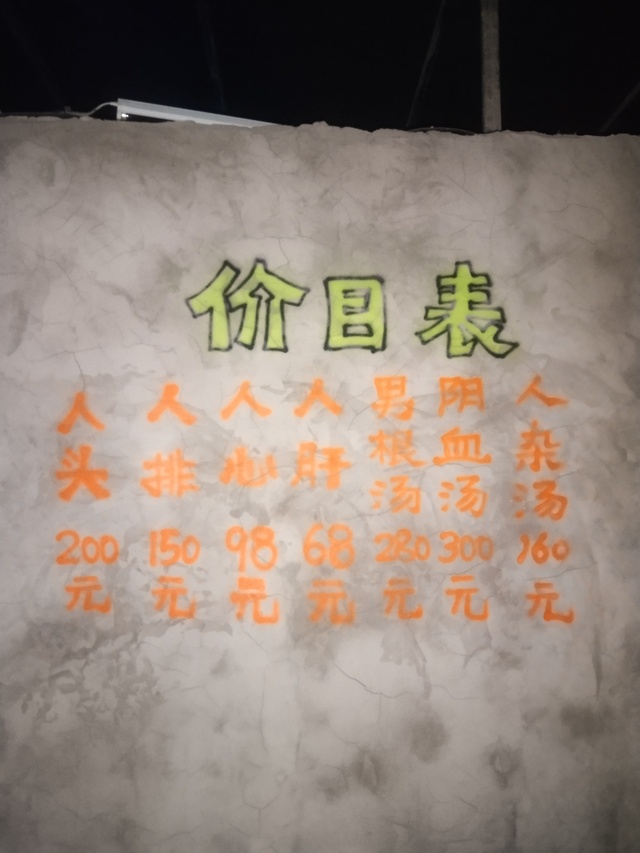 价目表
人头 200元
人排 150元
人心 98元
人肝 68元
男根汤 280元
阴血汤 300元
人杂汤 160元